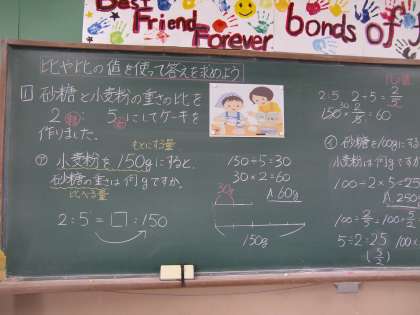 Best Friend Forever
bonds of
比や比の値を使って答えを求めよう
1 砂糖と小麦粉の重さの比を
2 5 にしてケーキを
作りました。
もとにする量
ア 小麦粉を150gにすると、
砂糖の重さは何gですか。
比べる量
2:5=□:150
150÷5=30
30×2=60
A.60g
30g
150g
2:5 2÷5=2/5
150×2/5=60
30
イ 砂糖を100gにする
小麦粉は何gですか
100÷2×5=25
A.250g
100÷2/5=100×5/2
5÷2=25
(5/2)